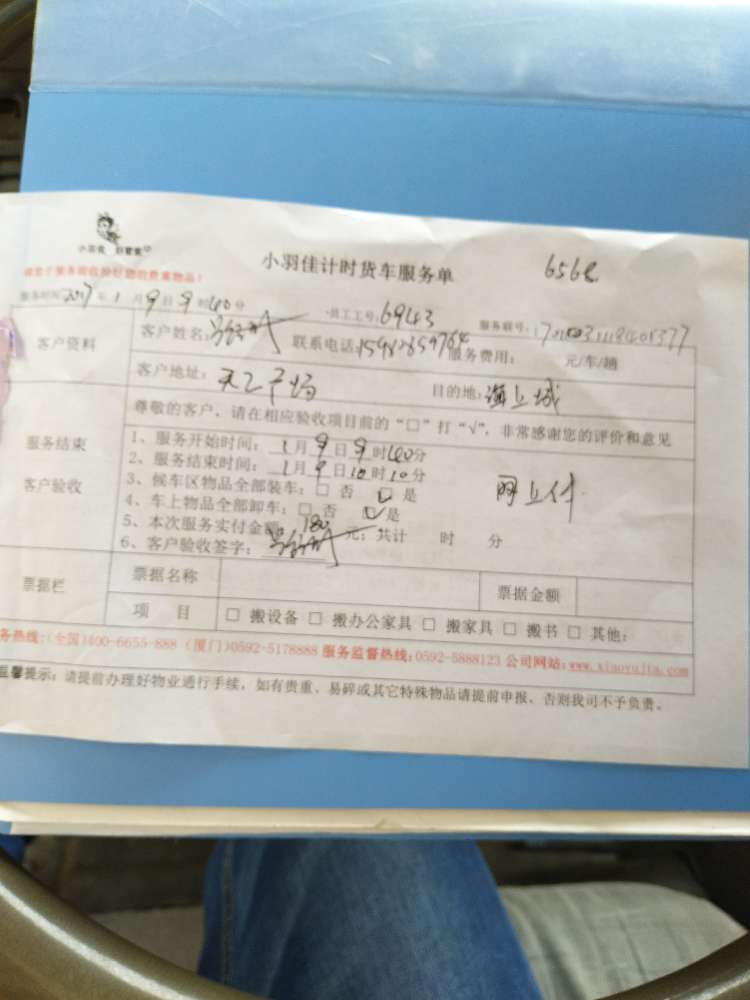 小羽佳计时货车服务单
6568
服务时间2017年1月9日9时40分 员工工号:6943 服务联号:
客户资料 客户姓名: 联系电话: 服务费用: 元/车/趟
客户地址:天乙广场 目的地:海上城
尊敬的客户，请在相应验收项目前的“□”打“√”，非常感谢您的评价和意见
服务结束
客户验收
1、服务开始时间：1月9日9时40分
2、服务结束时间：1月9日10时10分
3、候车区物品全部装车：□ 否 ☑ 是
网上付
4、车上物品全部卸车：□ 否 ☑ 是
5、本次服务实付金额 180 元；共计 时 分
6、客户验收签字：
票据栏 票据名称 票据金额
项 目 □ 搬设备 □ 搬办公家具 □ 搬家具 □ 搬书 □ 其他：
务热线:(全国)400-6655-888 (厦门)0592-5178888 服务监督热线:0592-5888123 公司网站:www.xiaoyujia.com
温馨提示：请提前办理好物业通行手续，如有贵重、易碎或其它特殊物品请提前申报、否则我司不予负责。